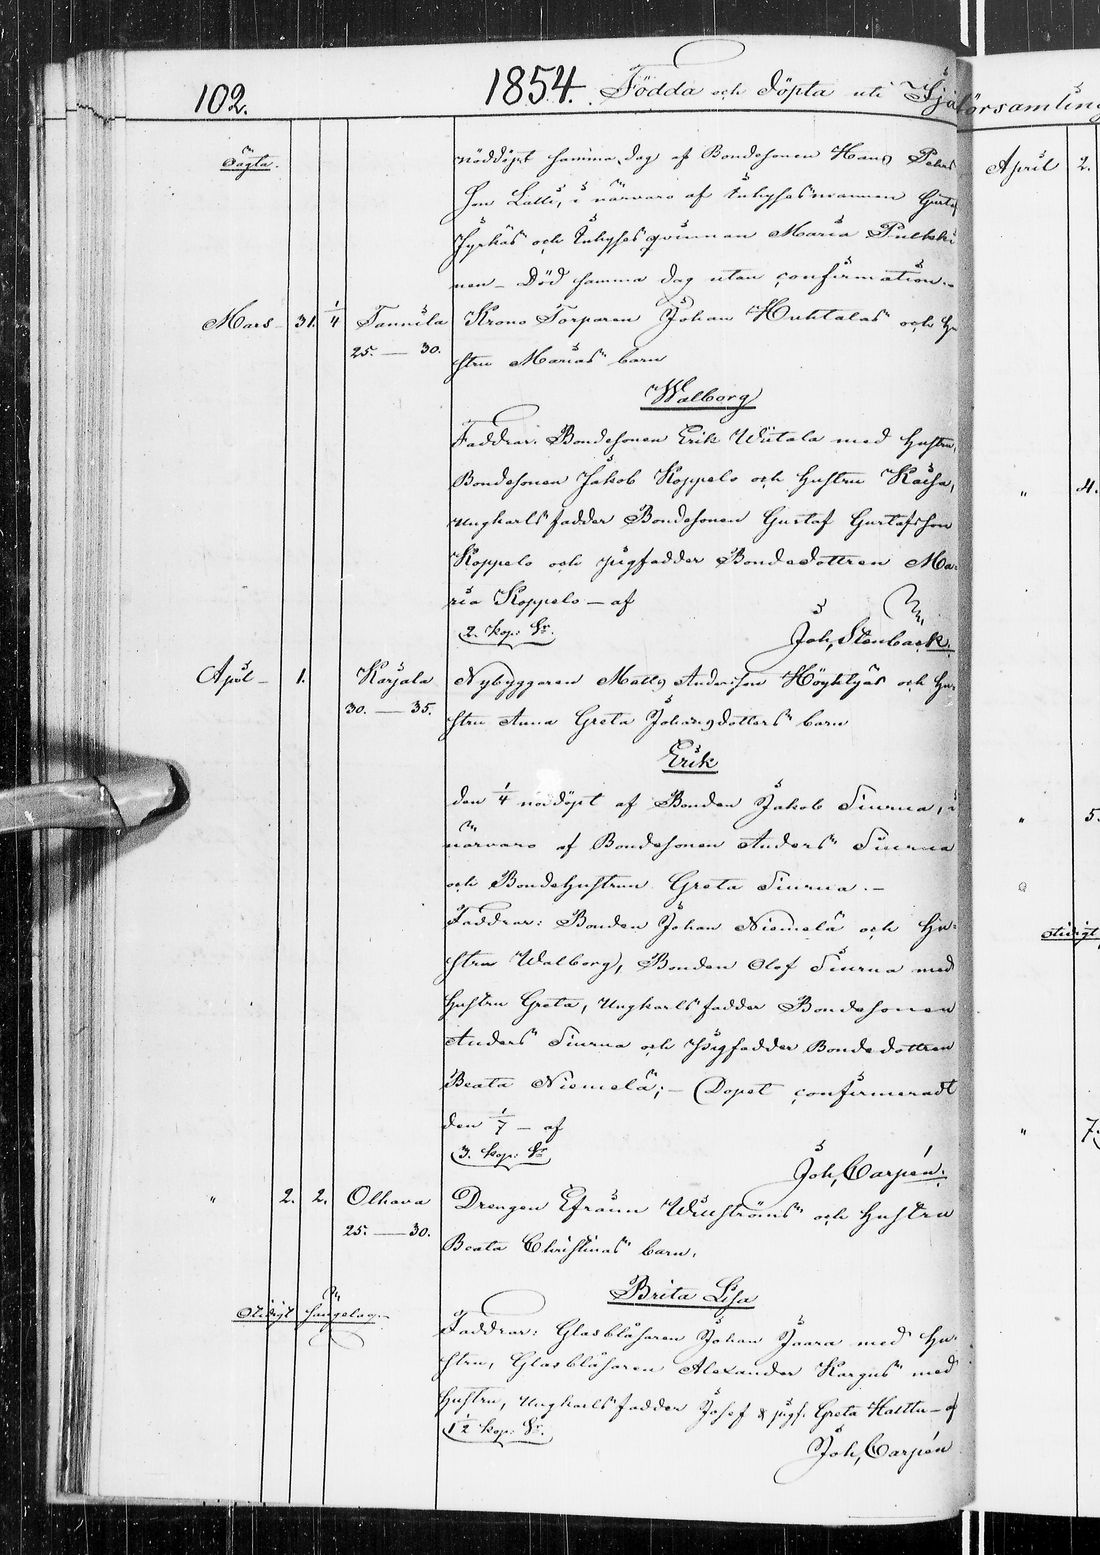 102. 1854. Födda och döpta uti Ijo församling
Sagta. nöddöpt samma dag af Bondesonen Hans Pehrs
son Latti, i närvaro af Inhysesmannen Gustaf
Jyrkäs och Inhyses qvinnan Maria Pulkki
nen – Död samma dag utan confirmation.
Mars – 31. 1/4 Tannila Krono Torparen Johan Huhtalas och hu
25. — 30. stru Marias barn
Walborg
Faddrar: Bondesonen Erik Wiitala med hustru,
Bondesonen Jakob Koppelo och hustru Kaisa,
ungkarlsfadder Bondesonen Gustaf Gustafsson
Koppelo och pigfadder Bondedottren Ma-
ria Koppelo – af
2. kop: Sr. Joh, Stenbäck.
April – 1. Karjala Nybyggaren Matts Andersson Höyhtyäs och hu-
30. — 35. stru Anna Greta Johansdotters barn
Erik
den 1/4 nöddöpt af Bonden Jakob Tiurna, i
närvaro af Bondesonen Anders Tiurna
och Bondehustrun Greta Tiurna. –
Faddrar: Bonden Johan Niemelä och hu-
stru Walborg, Bonden Olof Tiurna med
hustru Greta, Ungkarlsfadder Bondesonen
Anders Tiurna och pigfadder Bondedottren
Beata Niemelä; – Dopet confirmeradt
den 1/7 – af
3. kop: Sr Joh, Carpén.
" 2. 2. Olhava Drengen Efraim Wikströms och hustru
25. — 30. Beata Christinas barn.
Brita Lisa
Faddrar: Glasblåsaren Johan Jaara med hu-
stru, Glasblåsaren Alexander Kargus med
hustru, Ungkarlsfadder Josef & pigf. Greta Hasttu – af
12 kop: Sr. Joh, Carpén
April 2.
" 4.
" 5.
" 7.